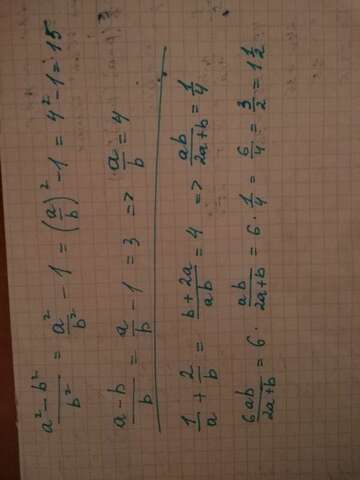 (a²-b²)/b² = a²/b² - 1 = (a/b)² - 1 = 4² - 1 = 15
(a-b)/b = a/b - 1 = 3 => a/b = 4
1/a + 2/b = (b+2a)/ab = 4 => ab/(2a+b) = 1/4
6ab/(2a+b) = 6 · ab/(2a+b) = 6 · 1/4 = 6/4 = 3/2 = 1 1/2